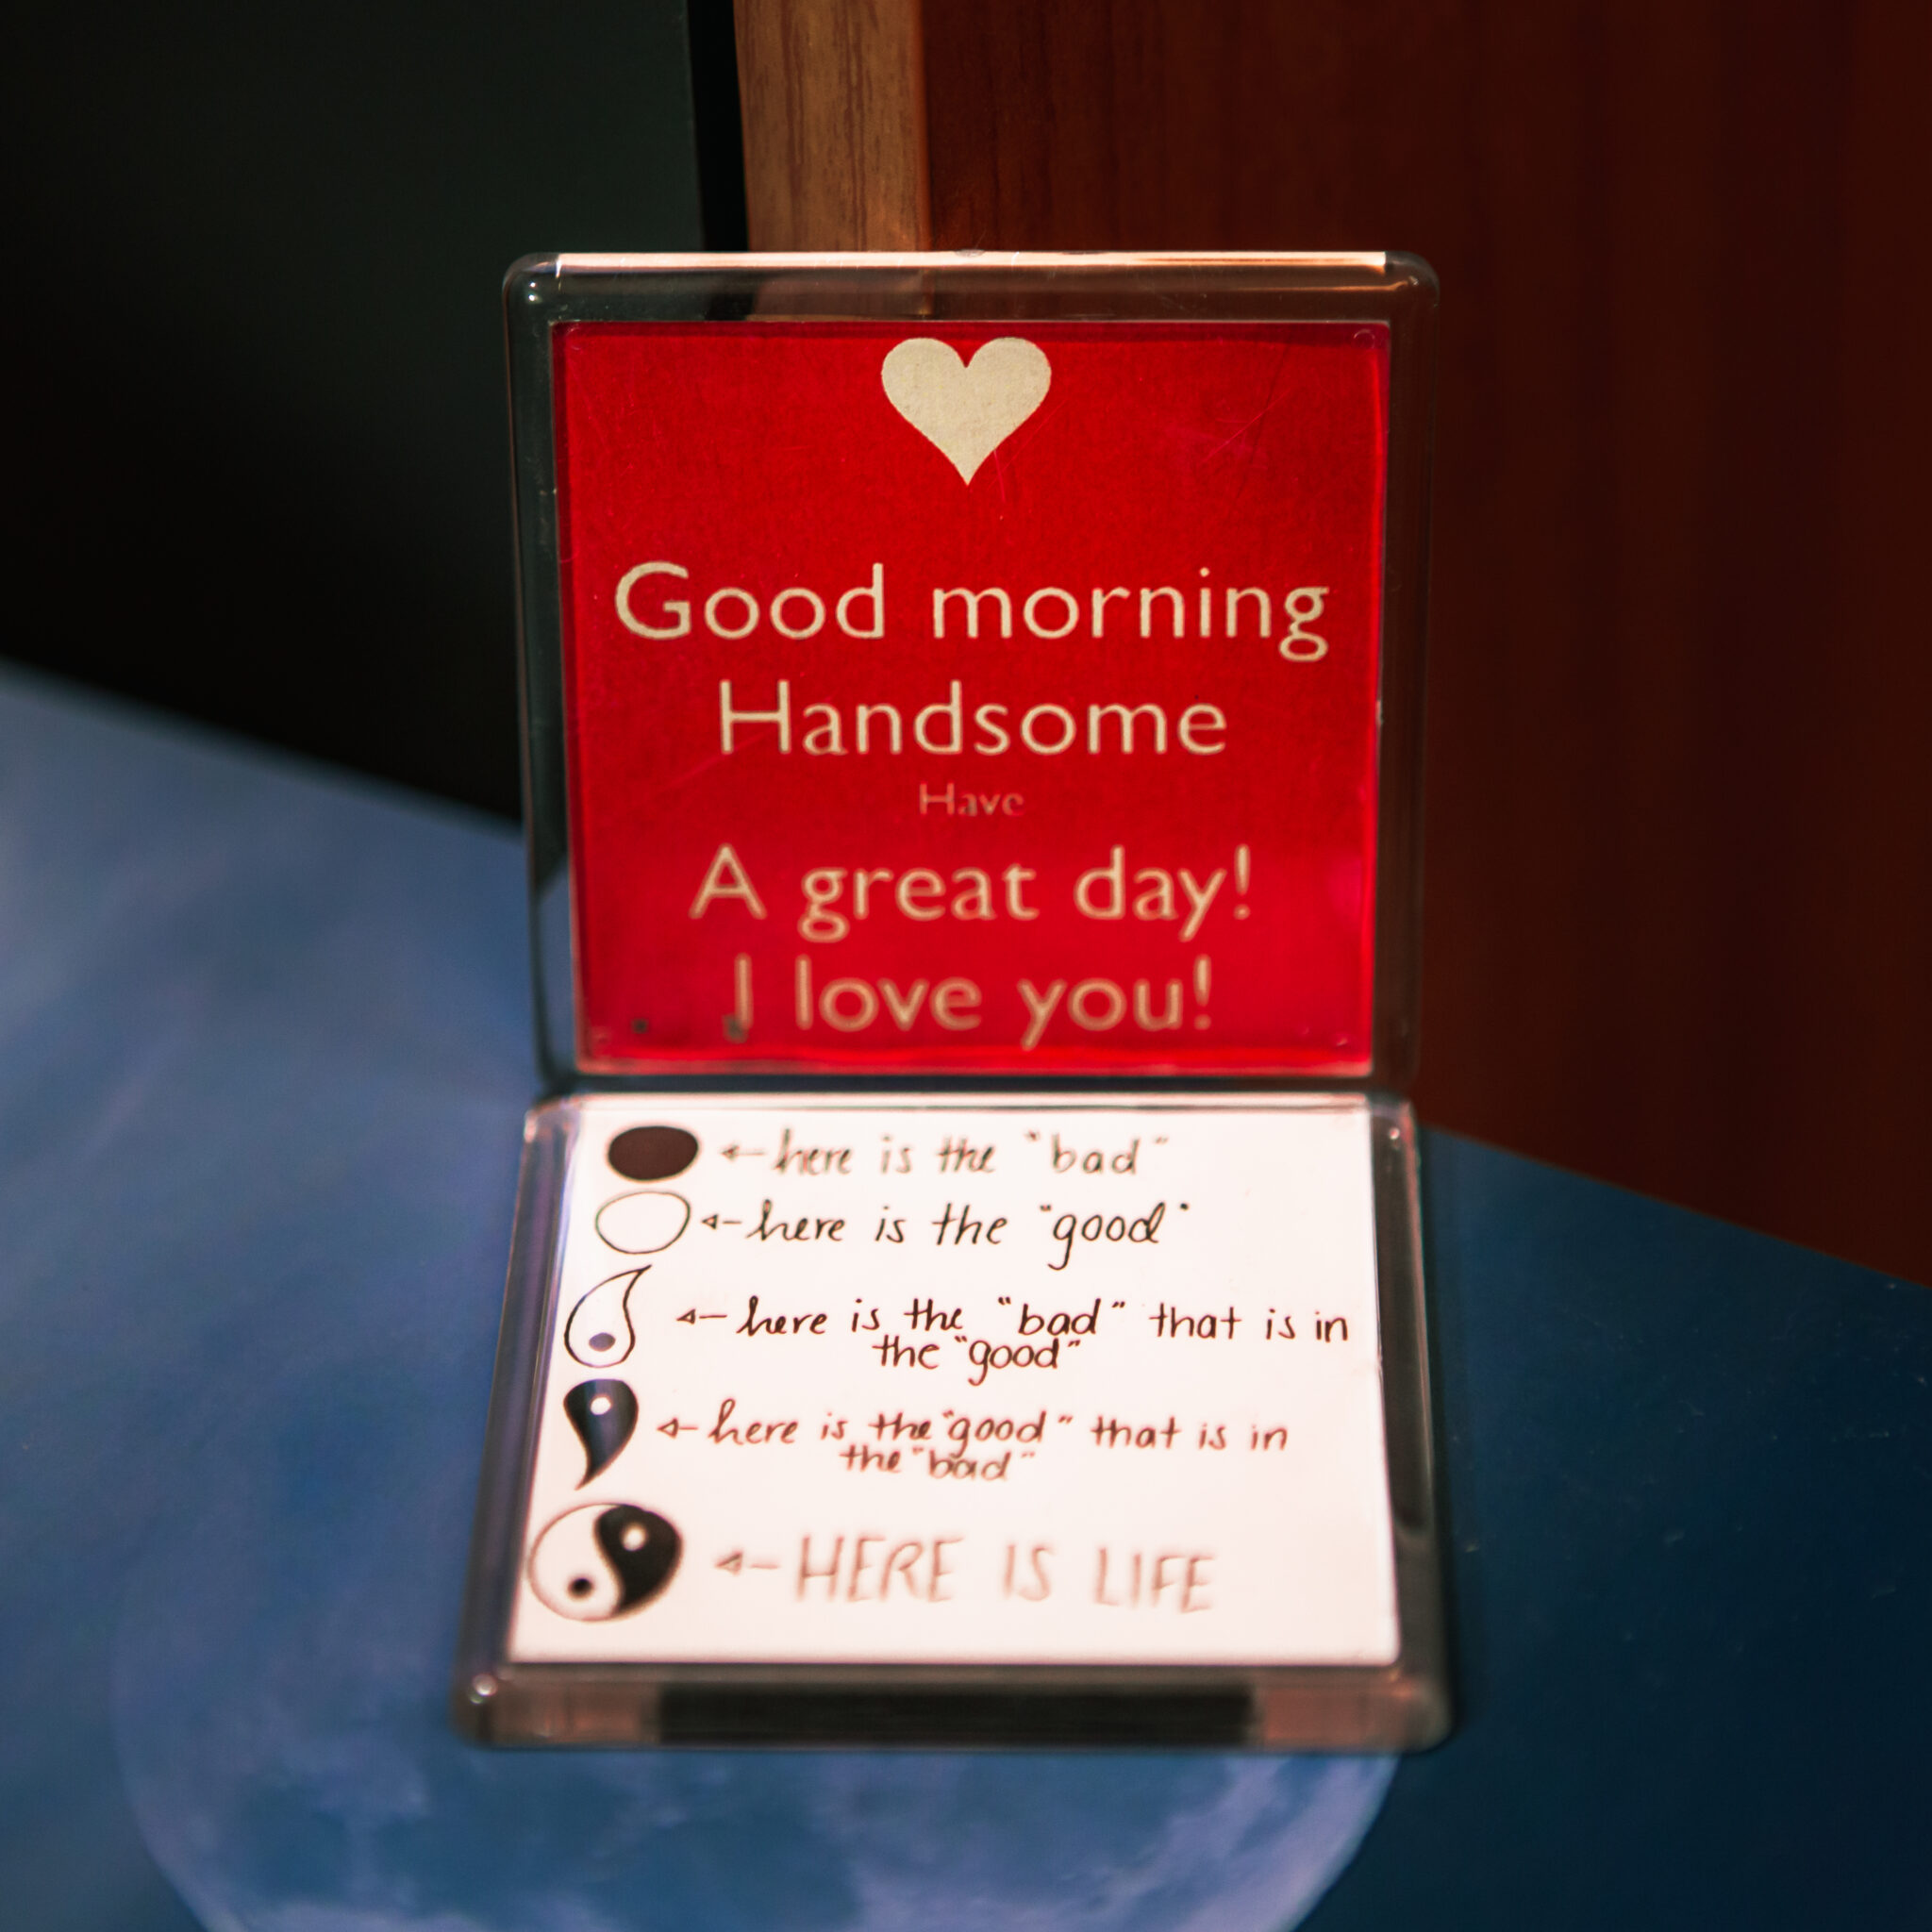 Good morning
Handsome
Have
A great day!
I love you!
here is the "bad"
here is the "good"
here is the "bad" that is in
the "good"
here is the "good" that is in
the "bad"
HERE IS LIFE